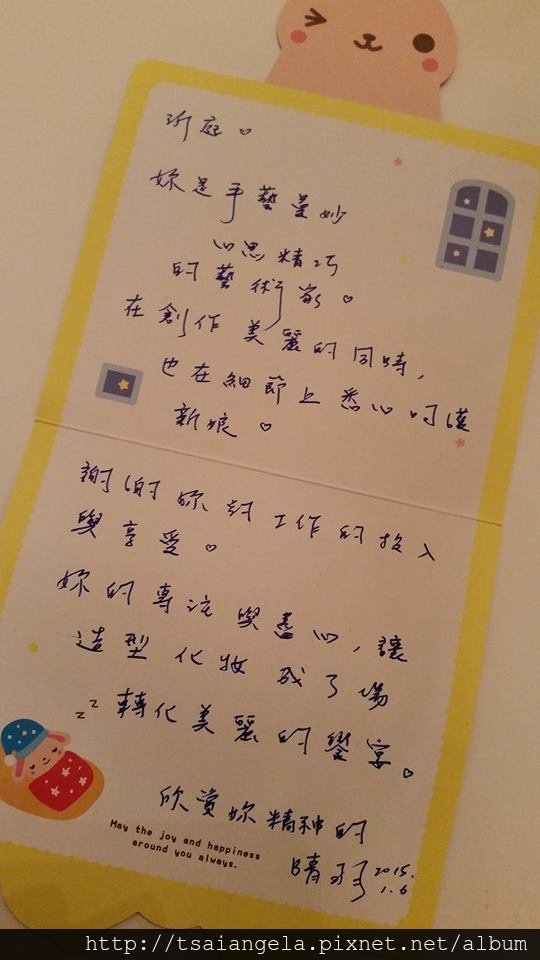 珩庭♡
妳是手藝曼妙
心思精巧
的藝術家♡
在創作美麗的同時,
也在細節上悉心叮嚀
新娘♡
謝謝妳對工作的投入
與享受。
妳的專注與盡心,讓
造型化妝成了場
轉化美麗的饗宴。
欣賞妳精神的
晴 2015.
1.6
z z
May the joy and happiness
around you always.
http://tsaiangela.pixnet.net/album